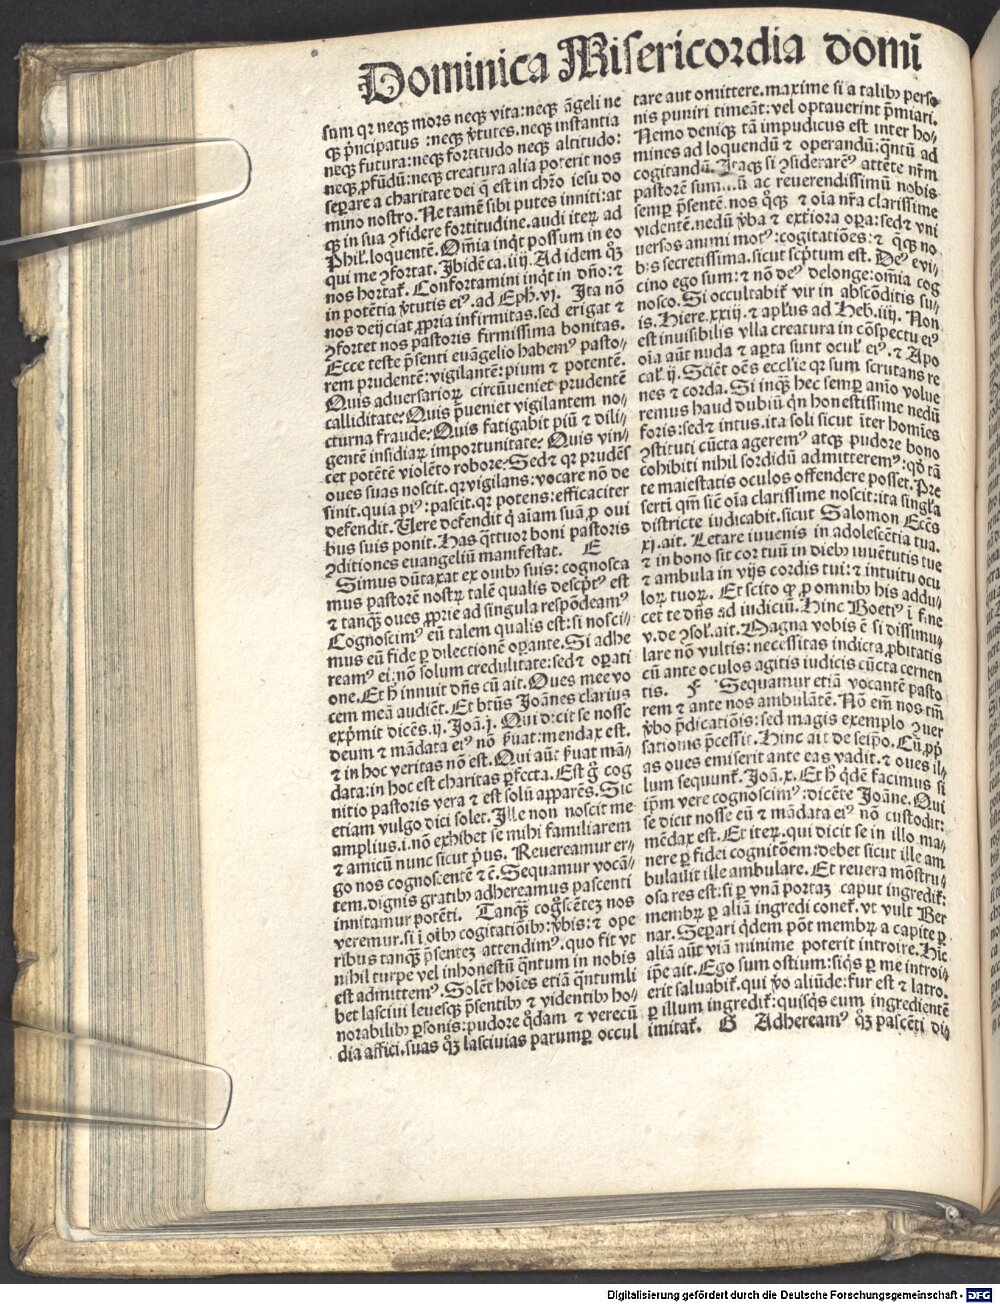 Dominica Misericordia domī
sum qꝛ neqꝫ mors neqꝫ vita: neqꝫ āgeli ne
qꝫ p̄ncipatus : neqꝫ v̄tutes. neqꝫ instantia
neqꝫ futura: neqꝫ fortitudo neqꝫ altitudo:
neqꝫ ꝓfūdū: neqꝫ creatura alia poterit nos
separe a charitate dei q̄ est in chr̄o iesu do
mino nostro. Ne tamē sibi putes inniti: at
qꝫ in sua ꝯfidere fortitudine. audi iteꝝ ad
Phil̓. loquentē. Om̄ia inqͥt possum in eo
qui me ꝯfortat. Ibidē ca. iiij. Ad idem qͦꝫ
nos hortat̓. Confortamini inqͥt in dn̄o: ⁊
in potētia v̄tutis eiꝰ. ad Eph. vi. Ita nō
nos deijciat ꝓpria infirmitas. sed erigat ⁊
ꝯfortet nos pastoris firmissima bonitas.
Ecce teste p̄senti euāgelio habemꝰ pasto⸗
rem prudentē: vigilantē: pium ⁊ potentē.
Quis aduersarioꝝ circūueniet prudentē
calliditate? Quis p̄ueniet vigilantem no⸗
cturna fraude? Quis fatigabit piū ⁊ dili⸗
gentē insidiaꝝ importunitate? Quis vin⸗
cet potētē violēto robore? Sed ⁊ qꝛ prudēs
oues suas noscit. qꝛ vigilans: vocare nō de
sinit. quia piꝰ: pascit. qꝛ potens: efficaciter
defendit. Uere defendit q̇ aīam suā ꝓ oui
bus suis ponit. Has qͣttuor boni pastoris
ꝯditiones euangeliū manifestat. E
Simus dūtaxat ex ouibꝫ suis: cognosca
mus pastorē nostꝝ talē qualis descp̄tꝰ est
⁊ tanqͣꝫ oues ꝓprie ad singula respōdeamꝰ
Cognoscimꝰ eū talem qualis est: si nosci⸗
mus eū fide ꝑ dilectionē oꝑante. Si adhe
reamꝰ ei: nō solum credulitate: sed ⁊ oꝑati
one. Et h̄ innuit dn̄s cū ait. Oues mee vo
cem meā audiēt. Et btūs Joānes clarius
exp̄mit dicēs. ij. Joā. j. Qui dicit se nosse
deum ⁊ mādata eiꝰ nō p̄uat: mendax est.
⁊ in hoc veritas nō est. Qui aūt p̄uat mā⸗
data: in hoc est charitas ꝑfecta. Est g̊ cog
nitio pastoris vera ⁊ est solū apparēs. Sic
etiam vulgo dici solet. Ille non noscit me
amplius. i. nō exhibet se mihi familiarem
⁊ amicū nunc sicut p̄us. Reuereamur er⸗
go nos cognoscentē ⁊ c̄. Sequamur vocā⸗
tem. dignis gratibꝫ adhereamus pascenti
innitamur potēti. Tanqͣꝫ cog̊scētez nos
veremur. si ī oībꝫ cogitatiōibꝫ: v̄bis: ⁊ ope
ribus tanqͣꝫ p̄sentez attendimꝰ. quo fit vt
nihil turpe vel inhonestū qͣntum in nobis
est admittemꝰ. Solēt hoīes etiā qͣntumli
bet lasciui leuesqꝫ p̄sentibꝫ ⁊ videntibꝫ ho⸗
norabilibꝫ ꝑsonis: pudore qͦdam ⁊ verecū
dia affici. suas qͦꝫ lasciuias parumꝑ occul
tare aut omittere. maxime si a talibꝫ perso
nis puniri timeāt: vel optauerint p̄miari.
Nemo deniqꝫ tā impudicus est inter ho⸗
mines ad loquendū ⁊ operandū: qͣntū ad
cogitandū. Itaqꝫ si ꝯsiderarēꝰ attēte nr̄m
pastorē ac reuerendissimū nobis
semꝑ p̄sentē. nos qͦꝫ ⁊ oīa nr̄a clarissime
videntē. nedū v̄ba ⁊ exteriora oꝑa: sed ⁊ vni
uersos animi motꝰ: cogitatiōes: ⁊ qͣꝫ no
bis secretissima. sicut scp̄tum est. Deꝰ evi⸗
cino ego sum: ⁊ nō deꝰ delonge: om̄ia cog
nosco. Si occultabit̓ vir in abscōditis su⸗
is. Hiere. xxiij. ⁊ apl̓us ad Heb. iiij. Non
est inuisibilis vlla creatura in cōspectu eiꝰ
oīa aūt nuda ⁊ aꝑta sunt ocul̓ eiꝰ. ⁊ Apo
cal̓. ij. Sciēt oēs eccl̓ie qꝛ sum scrutans re
nes ⁊ corda. Si inqͣꝫ hec semꝑ aīo volue
remus haud dubiū qͥn honestissime nedū
foris: sed ⁊ intus. ita soli sicut īter homīes
ꝯstituti cūcta ageremꝰ atqꝫ pudore bono
cohibiti nihil sordidū admitteremꝰ: qͦ tā
te maiestatis oculos offendere posset. Pre
sertī qm̄ sicut oīa clarissime noscit: ita singl̓a
districte iudicabit. sicut Salomon Eccs
xj. ait. Letare iuuenis in adolescētia tua.
⁊ in bono sit cor tuū in diebꝫ iuuētutis tue
⁊ ambula in vijs cordis tui: ⁊ intuitu ocu
loꝝ tuoꝝ. Et scito qꝫ ꝓ omnibꝫ his addu⸗
cet te dn̄s ad iudiciū. Hinc Boetiꝰ ī fine
v. de ꝯsol̓. ait. Magna vobis ē si dissimu⸗
lare nō vultis: necessitas indicta ꝓbitatis
cū ante oculos agitis iudicis cūcta cernen
tis. F Sequamur etiā vocantē pasto
rem ⁊ ante nos ambulātē. Nō em̄ nos tm̄
v̄bo p̄dicatiōis: sed magis exemplo ꝯuer
sationis p̄cessit. Hinc ait de seip̄o. Cū ꝓp̄
as oues emiserit ante eas vadit. ⁊ oues il⸗
lum sequunt̓. Joā. x. Et h̄ qͥdē facimus si
ip̄m vere cognoscimꝰ: dicēte Joāne. Qui
se dicit nosse eū ⁊ mādata eiꝰ nō custodit:
mēdax est. Et iteꝝ. qui dicit se in illo ma⸗
nere ꝑ fidei cognitōem: debet sicut ille am
bulauit ille ambulare. Et reuera mōstru⸗
osa res est: si ꝑ vnā portaz caput ingredit̓:
membꝝ ꝑ aliā ingredi conet̓. vt vult Ber
nar. Seꝑari qͥdem pōt membꝝ a capite ꝑ
aliā aūt viā minime poterit introire. Hīc
ip̄e ait. Ego sum ostium: siqͥs ꝑ me introi⸗
erit saluabit̓. qui v̄o aliūde: fur est ⁊ latro.
ꝑ illum ingredit̓: quisqͥs eum ingredientē
imitat̓. G Adhereamꝰ qͦꝫ pascēti di⸗
Digitalisierung gefördert durch die Deutsche Forschungsgemeinschaft - DFG